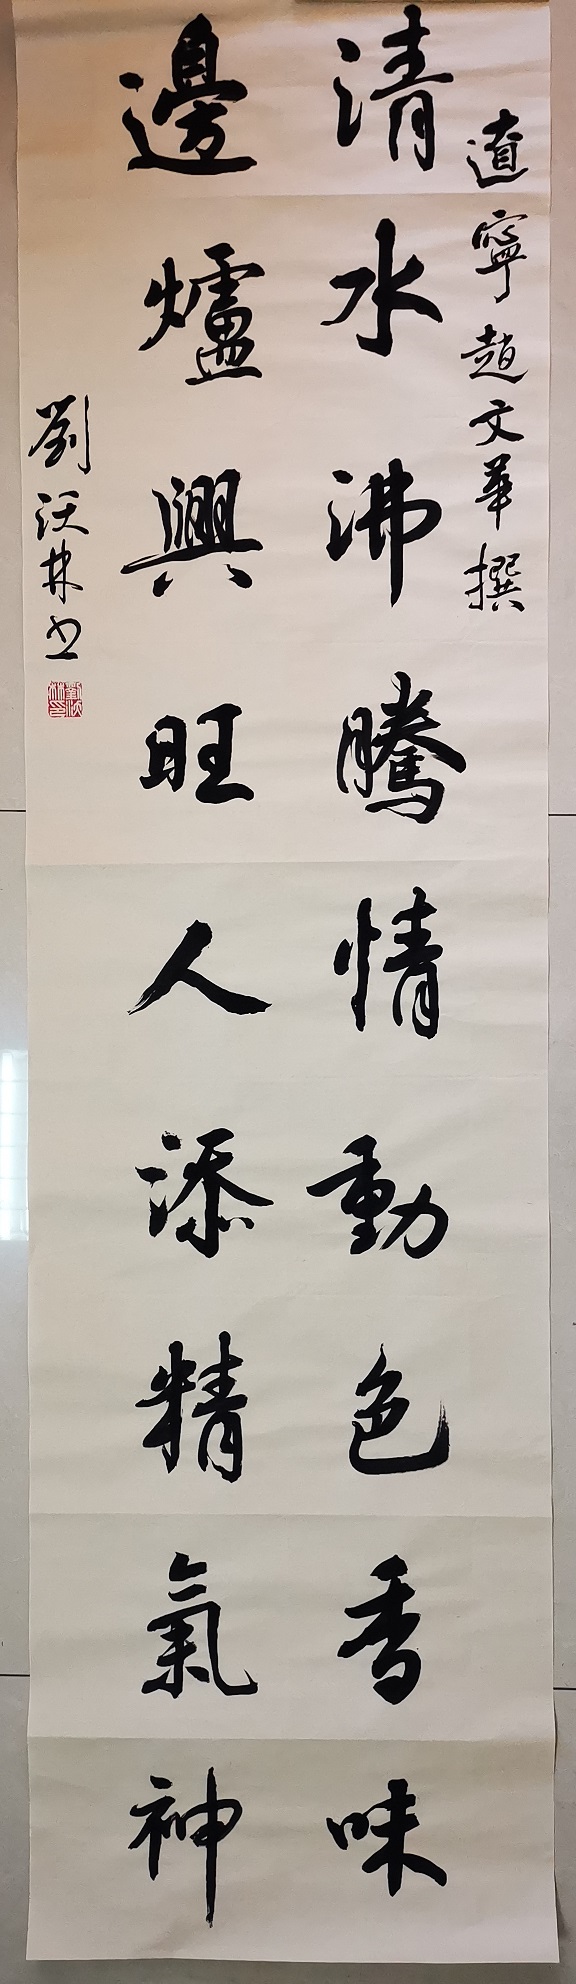 遼寧趙文華撰
清水沸騰情動色香味
邊爐興旺人添精氣神
劉沃林书